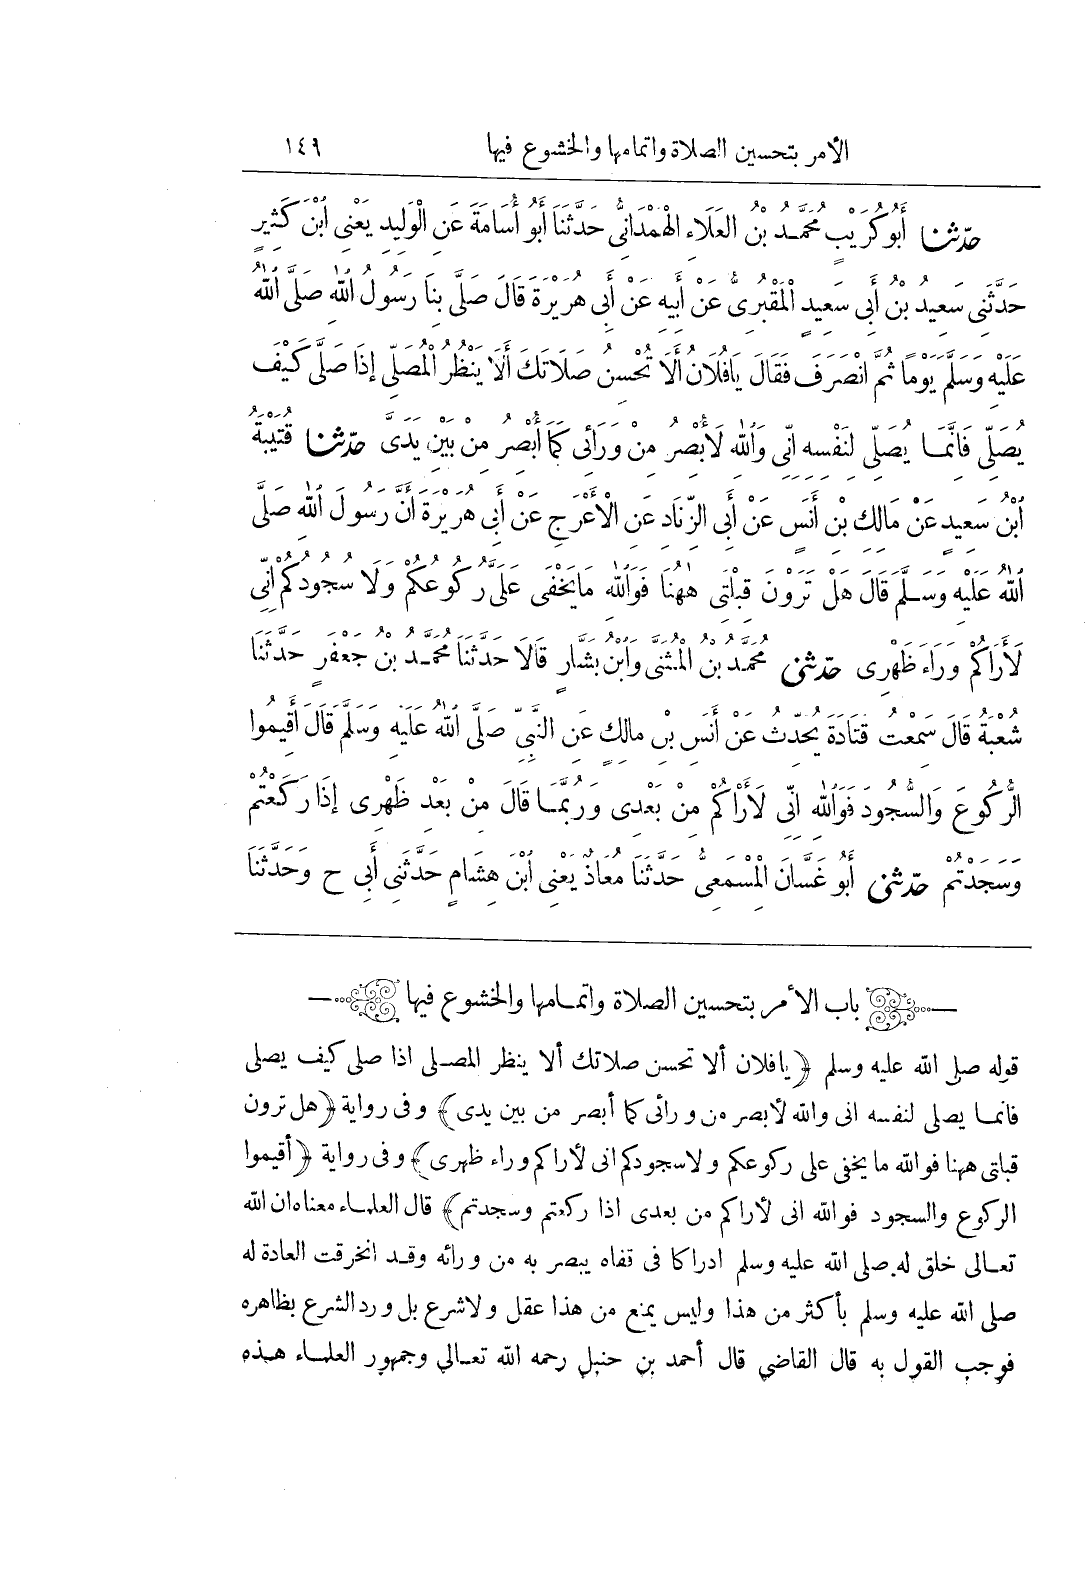 الأمر بتحسين الصلاة واتمامها والخشوع فيها ١٤٩
حدّثنا أَبُو كُرَيْبٍ مُحَمَّدُ بْنُ الْعَلَاءِ الْهَمْدَانِىُّ حَدَّثَنَا أَبُو أُسَامَةَ عَنِ الْوَلِيدِ يَعْنِى ابْنَ كَثِيرٍ
حَدَّثَنِى سَعِيدُ بْنُ أَبِى سَعِيدٍ الْمَقْبُرِىُّ عَنْ أَبِيهِ عَنْ أَبِى هُرَيْرَةَ قَالَ صَلَّى بِنَا رَسُولُ اللهِ صَلَّى اللهُ
عَلَيْهِ وَسَلَّمَ يَوْمًا ثُمَّ انْصَرَفَ فَقَالَ يَافُلَانُ أَلَا تُحْسِنُ صَلَاتَكَ أَلَا يَنْظُرُ الْمُصَلِّى إِذَا صَلَّى كَيْفَ
يُصَلِّى فَانَّمَا يُصَلِّى لِنَفْسِهِ انِّى وَاللهِ لَأُبْصِرُ مِنْ وَرَائِى كَمَا أُبْصِرُ مِنْ بَيْنِ يَدَىَّ حدّثنا قُتَيْبَةُ
ابْنُ سَعِيدٍ عَنْ مَالِكِ بْنِ أَنَسٍ عَنْ أَبِى الزِّنَادِ عَنِ الْأَعْرَجِ عَنْ أَبِى هُرَيْرَةَ أَنَّ رَسُولَ اللهِ صَلَّى
اللهُ عَلَيْهِ وَسَلَّمَ قَالَ هَلْ تَرَوْنَ قِبْلَتِى هٰهُنَا فَوَاللهِ مَا يَخْفَى عَلَىَّ رُكُوعُكُمْ وَلَا سُجُودُكُمْ انِّى
لَأَرَاكُمْ وَرَاءَ ظَهْرِى حدّثنى مُحَمَّدُ بْنُ الْمُثَنَّى وَابْنُ بَشَّارٍ قَالَا حَدَّثَنَا مُحَمَّدُ بْنُ جَعْفَرٍ حَدَّثَنَا
شُعْبَةُ قَالَ سَمِعْتُ قَتَادَةَ يُحَدِّثُ عَنْ أَنَسِ بْنِ مَالِكٍ عَنِ النَّبِىِّ صَلَّى اللهُ عَلَيْهِ وَسَلَّمَ قَالَ أَقِيمُوا
الرُّكُوعَ وَالسُّجُودَ فَوَاللهِ انِّى لَأَرَاكُمْ مِنْ بَعْدِى وَرُبَّمَا قَالَ مِنْ بَعْدِ ظَهْرِى إِذَا رَكَعْتُمْ
وَسَجَدْتُمْ حدّثنى أَبُو غَسَّانَ الْمِسْمَعِىُّ حَدَّثَنَا مُعَاذٌ يَعْنِى ابْنَ هِشَامٍ حَدَّثَنِى أَبِى ح وَحَدَّثَنَا
باب الأمر بتحسين الصلاة واتمامها والخشوع فيها
قوله صلى الله عليه وسلم ﴿يافلان ألا تحسن صلاتك ألا ينظر المصلى اذا صلى كيف يصلى
فانما يصلى لنفسه انى والله لأبصر من ورائى كما أبصر من بين يدى﴾ وفى رواية ﴿هل ترون
قبلتى ههنا فوالله ما يخفى على ركوعكم ولاسجودكم انى لأراكم وراء ظهرى﴾ وفى رواية ﴿أقيموا
الركوع والسجود فوالله انى لأراكم من بعدى اذا ركعتم وسجدتم﴾ قال العلماء معناه ان الله
تعالى خلق له صلى الله عليه وسلم ادراكا فى قفاه يبصر به من ورائه وقد انخرقت العادة له
صلى الله عليه وسلم بأكثر من هذا وليس يمنع من هذا عقل ولاشرع بل ورد الشرع بظاهره
فوجب القول به قال القاضي قال أحمد بن حنبل رحمه الله تعالي وجمهور العلماء هذه